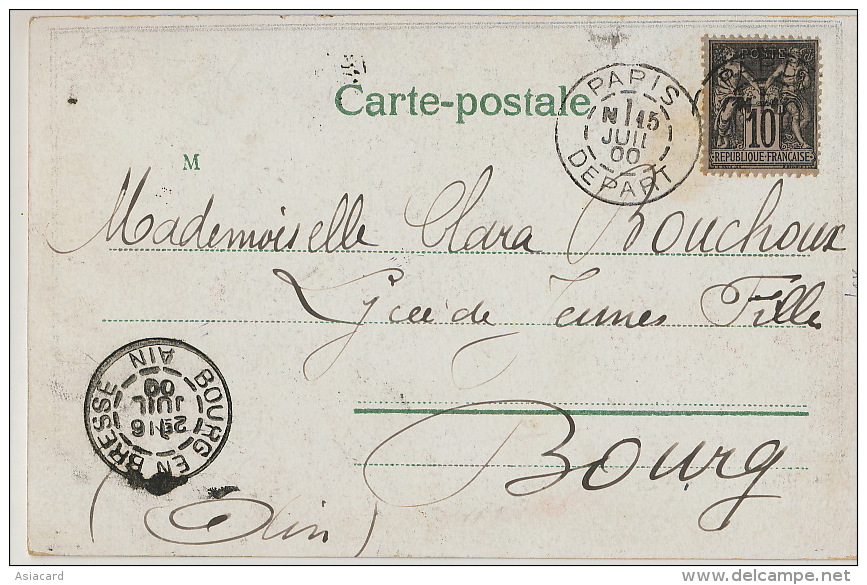 Carte-postale
PARIS
N 15
JUIL
00
DEPART
POSTE
10
REPUBLIQUE-FRANÇAISE
M
Mademoiselle Clara Bouchoux
Lycée de Jeunes Filles
BOURG EN BRESSE
AIN
2E 16
JUIL
00
Bourg
(Ain)
Asiacard
delcampe.net